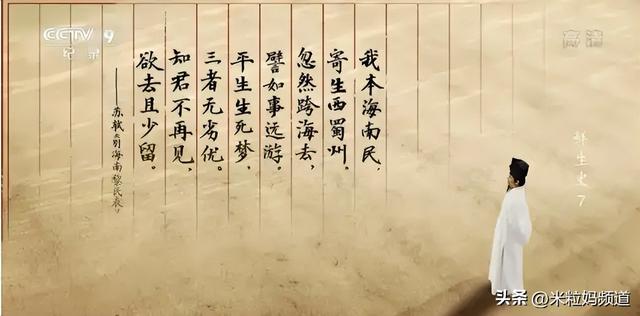 CCTV 9
纪录
高清
我本海南民，
寄生西蜀州。
忽然跨海去，
譬如事远游。
平生生死梦，
三者无劣优。
知君不再见，
欲去且少留。
——苏轼《别海南黎民表》
鲜生史 7
头条 @米粒妈频道